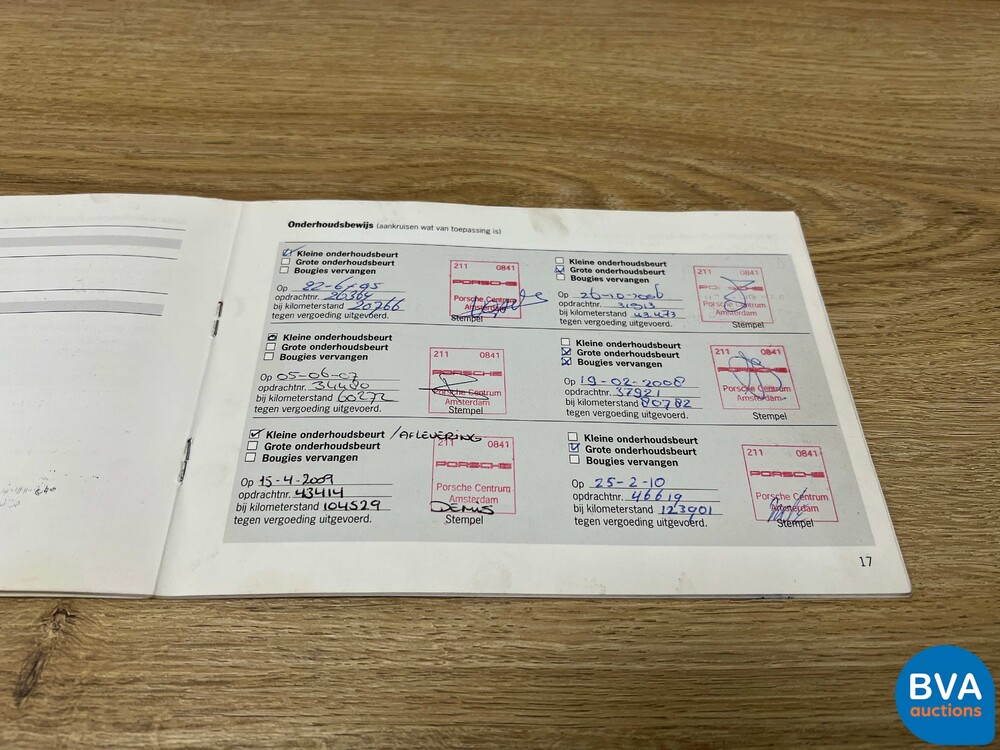 Onderhoudsbewijs (aankruisen wat van toepassing is)
Kleine onderhoudsbeurt
Grote onderhoudsbeurt
Bougies vervangen
Op 22-6-95
opdrachtnr. 26364
bij kilometerstand 20766
tegen vergoeding uitgevoerd.
211 0841
PORSCHE
Porsche Centrum
Amsterdam
Stempel
Kleine onderhoudsbeurt
Grote onderhoudsbeurt
Bougies vervangen
Op 26-10-2006
opdrachtnr. 31913
bij kilometerstand 43.473
tegen vergoeding uitgevoerd.
211 0841
PORSCHE
Porsche Centrum
Amsterdam
Stempel
Kleine onderhoudsbeurt
Grote onderhoudsbeurt
Bougies vervangen
Op 05-06-07
opdrachtnr. 34480
bij kilometerstand 60272
tegen vergoeding uitgevoerd.
211 0841
PORSCHE
Porsche Centrum
Amsterdam
Stempel
Kleine onderhoudsbeurt
Grote onderhoudsbeurt
Bougies vervangen
Op 19-02-2008
opdrachtnr. 37921
bij kilometerstand 80782
tegen vergoeding uitgevoerd.
211 0841
PORSCHE
Porsche Centrum
Amsterdam
Stempel
Kleine onderhoudsbeurt /AFLEVERING
Grote onderhoudsbeurt
Bougies vervangen
Op 15-4-2009
opdrachtnr. 43414
bij kilometerstand 104529
tegen vergoeding uitgevoerd.
211 0841
PORSCHE
Porsche Centrum
Amsterdam
DENNIS
Stempel
Kleine onderhoudsbeurt
Grote onderhoudsbeurt
Bougies vervangen
Op 25-2-10
opdrachtnr. 46619
bij kilometerstand 123901
tegen vergoeding uitgevoerd.
211 0841
PORSCHE
Porsche Centrum
Amsterdam
Stempel
17
BVA
auctions